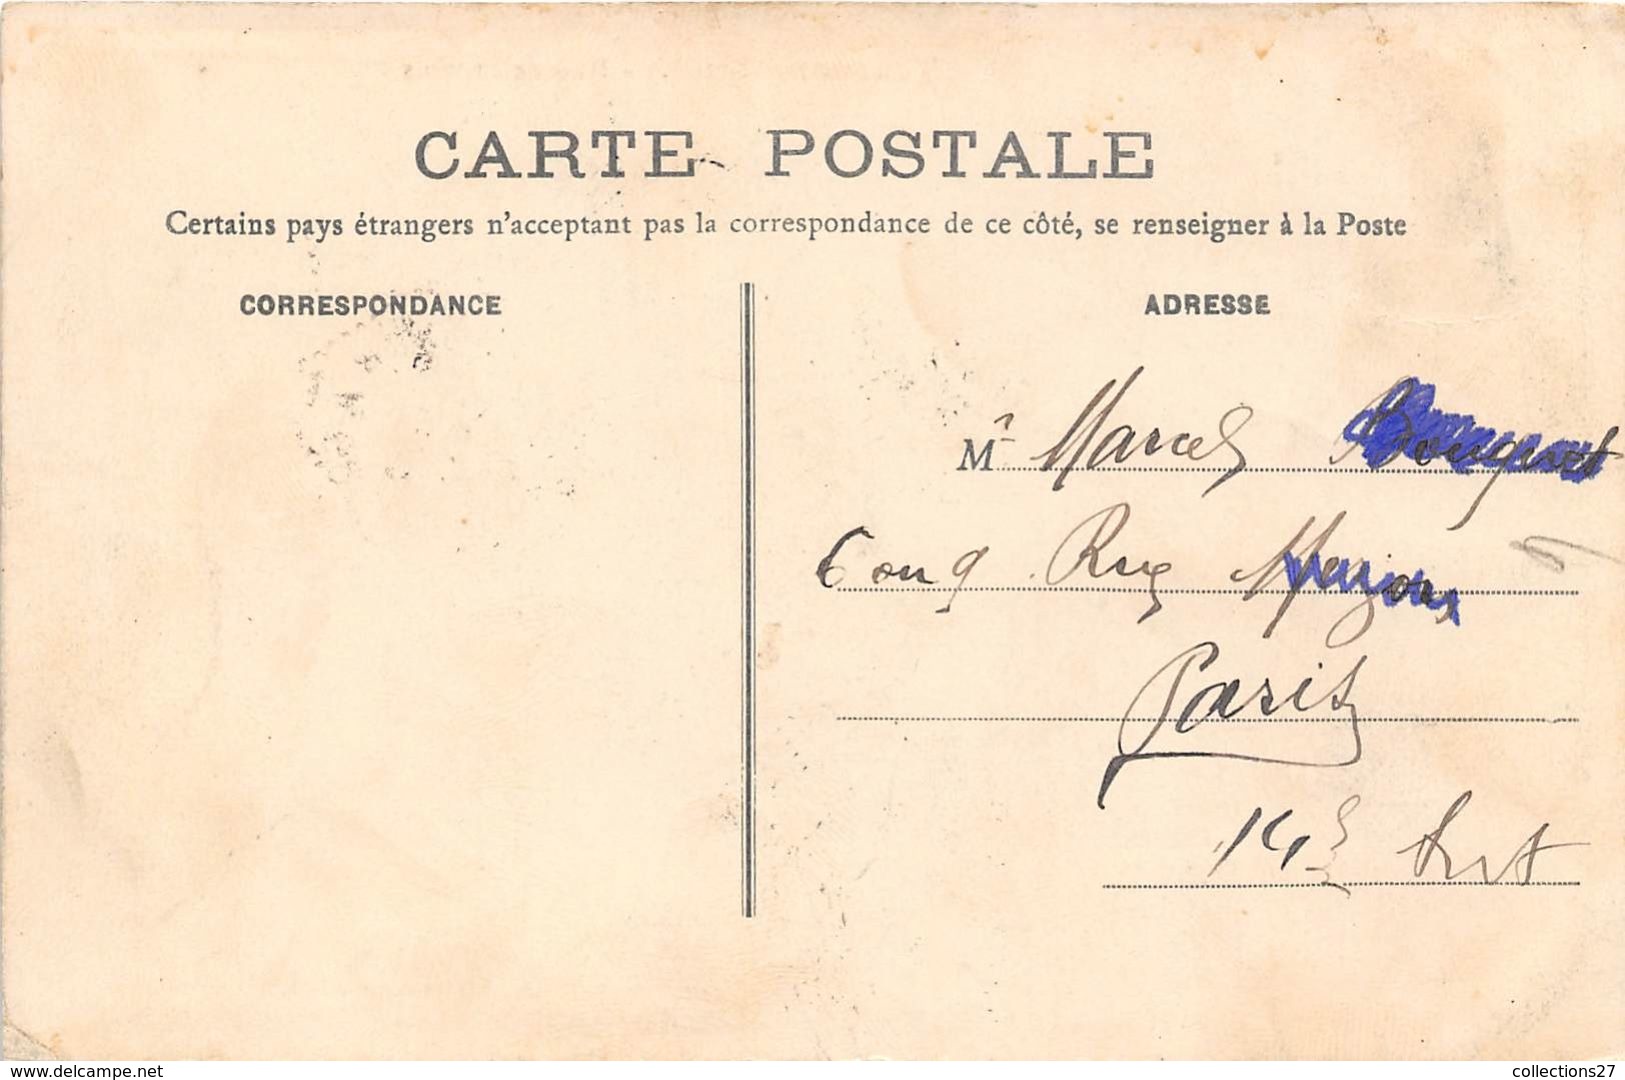 CARTE POSTALE
Certains pays étrangers n'acceptant pas la correspondance de ce côté, se renseigner à la Poste
CORRESPONDANCE
ADRESSE
Mr Marcel
6 ou 9 Rue
Paris
14e Arrt
www.delcampe.net
collections27